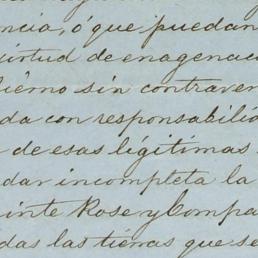 ncia, ó que puedan
virtud de enagenac
bierno sin contraven
da con responsabili
de esas légitimas
dar incompleta la
inte Rose y Compa
das las tierras que se